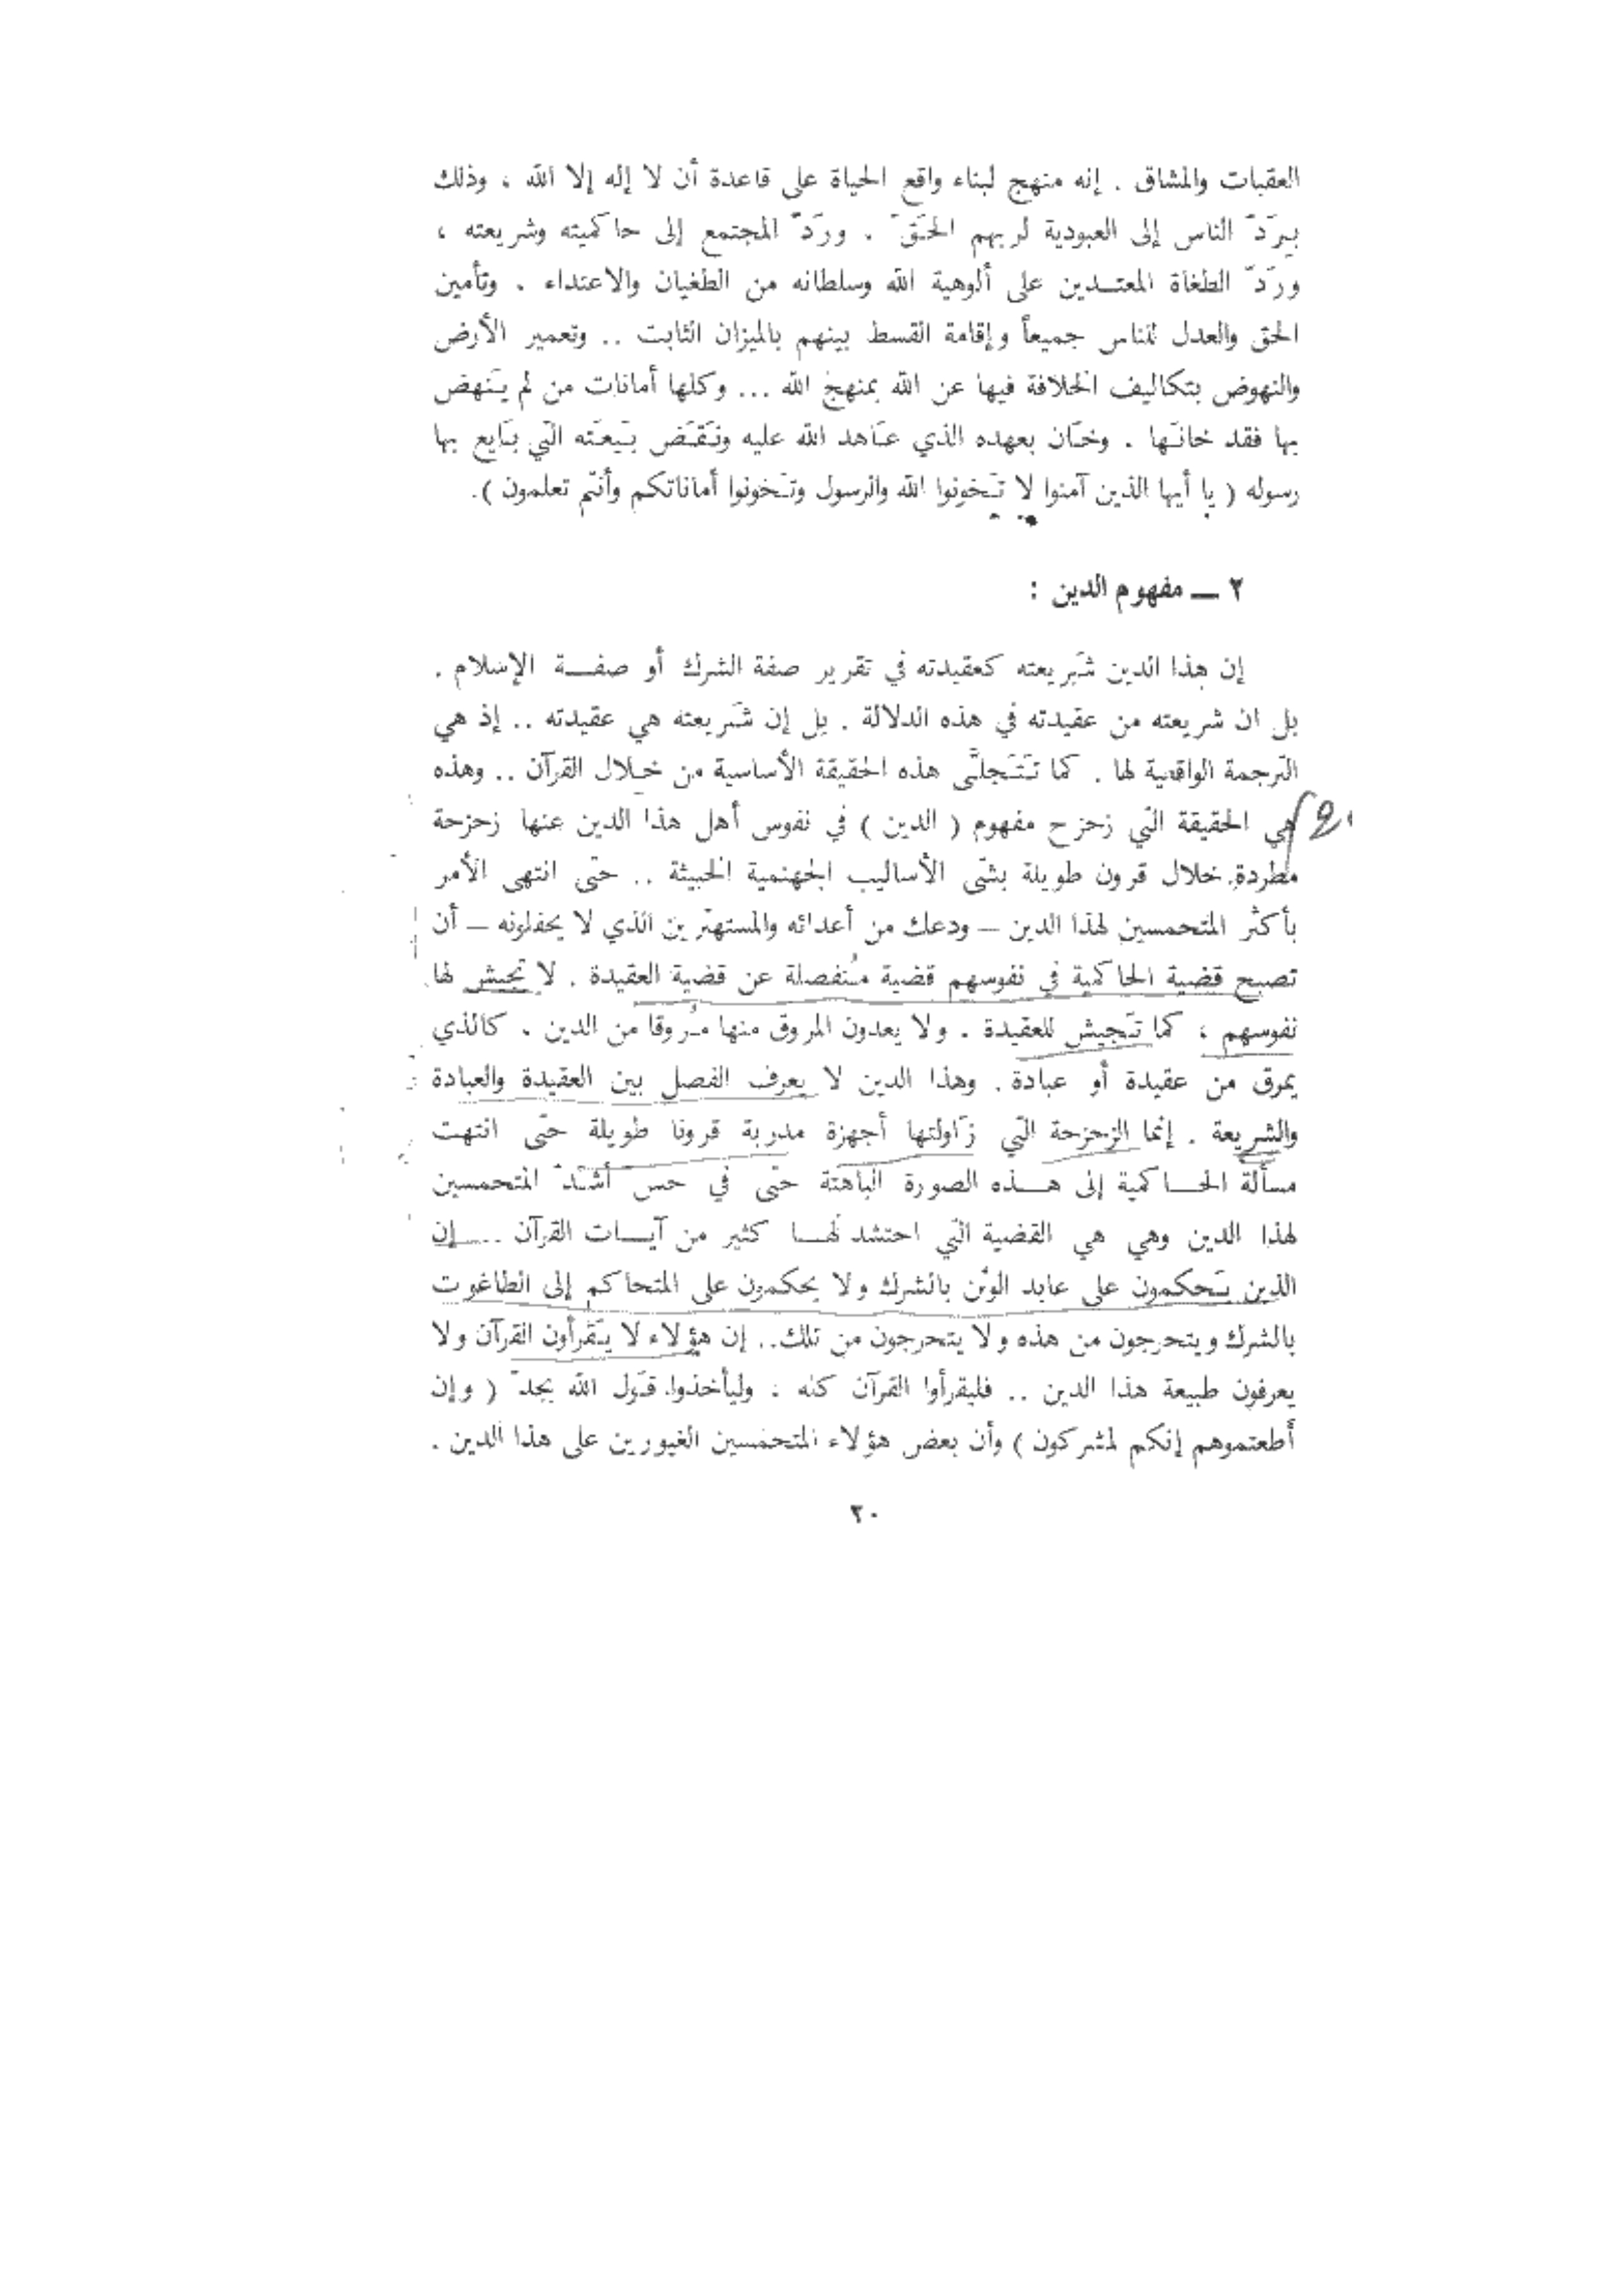 العقبات والمشاق . إنه منهج لبناء واقع الحياة على قاعدة أن لا إله إلا الله ، وذلك
بِرَدّ الناس إلى العبودية لربهم الحَقّ . ورَدّ المجتمع إلى حاكميته وشريعته ،
ورَدّ الطغاة المعتـدين على ألوهية الله وسلطانه من الطغيان والاعتداء . وتأمين
الحق والعدل للناس جميعاً وإقامة القسط بينهم بالميزان الثابت .. وتعمير الأرض
والنهوض بتكاليف الخلافة فيها عن الله بمنهج الله ... وكلها أمانات من لم يَنهض
بها فقد خانَها . وخَان بعهده الذي عَاهد الله عليه ونَقَض بَيعَته التي بَايع بها
رسوله ( يا أيها الذين آمنوا لا تَخونوا الله والرسول وتَخونوا أماناتكم وأنتم تعلمون ).
٢ ــ مفهوم الدين :
إن هذا الدين شَريعته كعقيدته في تقرير صفة الشرك أو صفـــة الإسلام .
بل ان شريعته من عقيدته في هذه الدلالة . بل إن شَريعته هي عقيدته .. إذ هي
الترجمة الواقعية لها . كما تَتَجلَّى هذه الحقيقة الأساسية من خـلال القرآن .. وهذه
هي الحقيقة التي زحزح مفهوم ( الدين ) في نفوس أهل هذا الدين عنها زحزحة
مطردة خلال قرون طويلة بشتى الأساليب الجهنمية الخبيثة .. حتى انتهى الأمر
بأكثر المتحمسين لهذا الدين – ودعك من أعدائه والمستهترين الذي لا يحفلونه – أن
تصبح قضية الحاكمية في نفوسهم قضية مُنفصلة عن قضية العقيدة . لا تجيش لها
نفوسهم ، كما تَجيش للعقيدة . ولا يعدون المروق منها مُروقا من الدين . كالذي
يمرق من عقيدة أو عبادة . وهذا الدين لا يعرف الفصل بين العقيدة والعبادة
والشريعة . إنما الزحزحة التي زَاولتها أجهزة مدربة قرونا طويلة حتى انتهت
مسألة الحــاكمية إلى هــذه الصورة الباهتة حتى في حسّ أشَدّ المتحمسين
لهذا الدين وهي هي القضية التي احتشد لهــا كثير من آيــات القرآن .. إن
الذين يَحكمون على عابد الوثن بالشرك ولا يحكمون على المتحاكم إلى الطاغوت
بالشرك ويتحرجون من هذه ولا يتحرجون من تلك.. إن هؤلاء لا يَقرأون القرآن ولا
يعرفون طبيعة هذا الدين .. فليقرأوا القرآن كله ، وليأخذوا قَول الله بجدّ ( وإن
أطعتموهم إنكم لمشركون ) وأن بعض هؤلاء المتحمسين الغيورين على هذا الدين .
٢٠